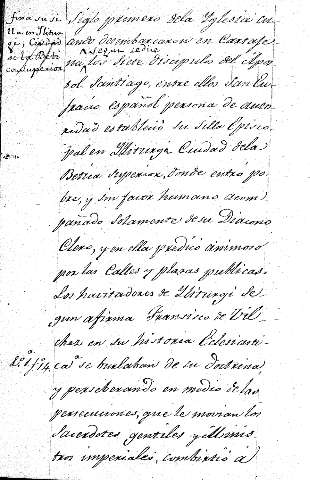 fixa su si
lla en Ilitur
gi, Ciudad
de la Beti
ca Superior
Siglo primero dela Yglesia cu
ando desembarcaron en Cartage
na, segun se dice
los siete Discipulos del Apos
tol Santiago, entre ellos San Eu
fracio español persona de auto
ridad estableció su silla Episco
pal en Yliturgi Ciudad dela
Betica Superior, donde entro po
bre, y sin favor humano acom
pañado solamente de su Diacono
Clero, y en ella predicó animoso
por las Calles y plazas publicas.
Los havitadores de Yliturgi se
gun afirma Francisco de Vil
chez en su historia Eclesiasti
Lº 1º fº 14.
ca, se burlaban de su doctrina
y perseberando en medio de las
persecuciones, que le movian los
Sacerdotes gentiles y Minis
tros imperiales, combirtió á